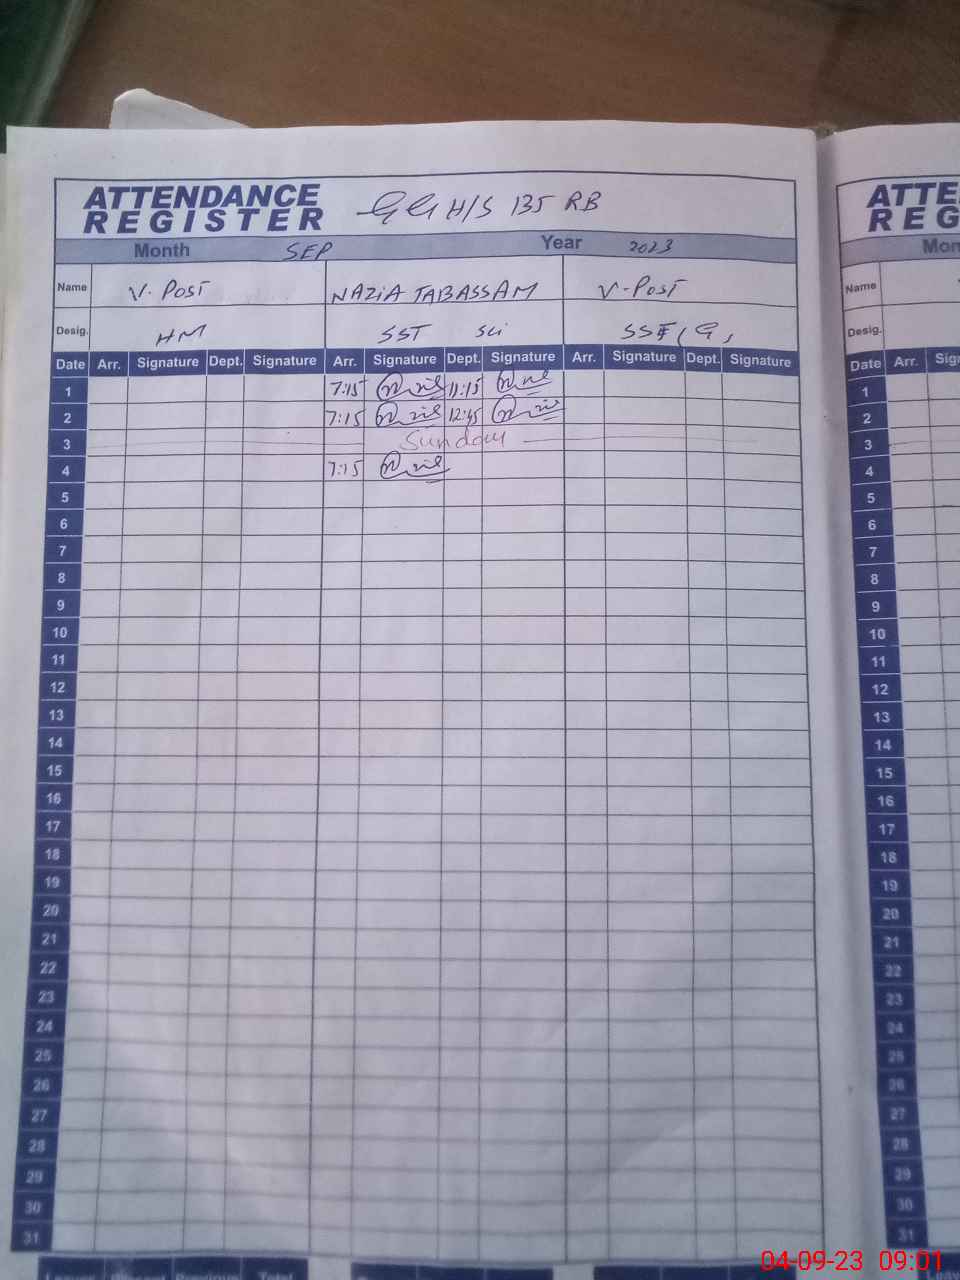 ATTENDANCE REGISTER GG H/S 135 RB
Month SEP Year 2023
Name V. POST NAZIA TABASSAM V-POST
Desig. HM SST Sci SSE (G)
Date Arr. Signature Dept. Signature Arr. Signature Dept. Signature Arr. Signature Dept. Signature
1 7:15 11:15
2 7:15 12:45
3 Sunday
4 7:15
5
6
7
8
9
10
11
12
13
14
15
16
17
18
19
20
21
22
23
24
25
26
27
28
29
30
31
Total
ATTE
REG
Mon
Name
Desig.
Date Arr. Sig
1
2
3
4
5
6
7
8
9
10
11
12
13
14
15
16
17
18
19
20
21
22
23
24
25
26
27
28
29
30
31
04-09-23 09:01